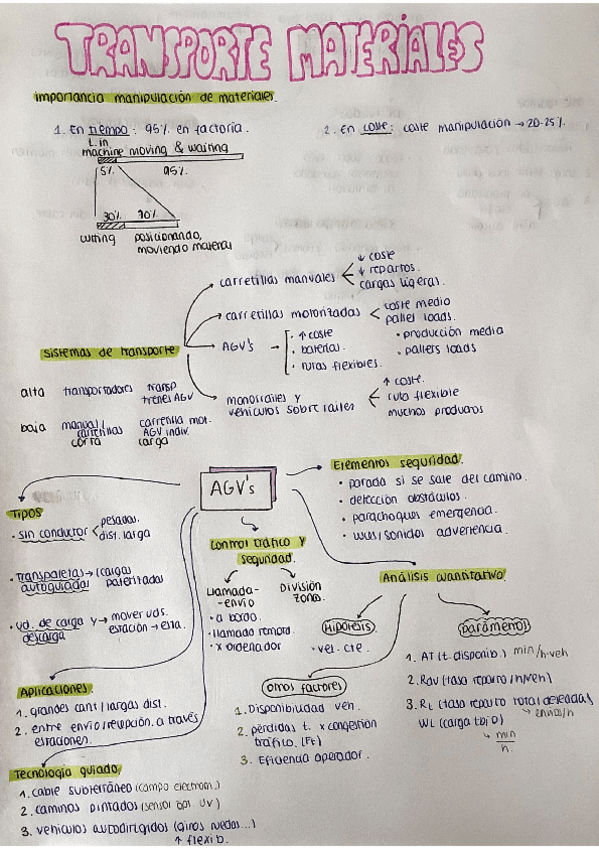 TRANSPORTE MATERIALES
importancia manipulación de materiales.
1. En tiempo: 95% en factoría.
2. En coste: coste manipulación → 20-25%
t. in
machine moving & waiting
5% 95%
30% 70%
cutting posicionando,
moviendo material
sistemas de transporte
carretillas manuales
↓ coste
↓ repartos.
cargas ligeras.
carretillas motorizadas
coste medio
pallet loads.
AGV's
· ↑ coste
· baterías.
· rutas flexibles.
· producción media
· pallets loads
monorraíles y
vehículos sobre raíles
↑ coste.
ruta flexible
muchos productos
alta transportadores transp
trenes AGV
baja manual/ carretilla mot.
carretillas AGV indiv.
corta carga
AGV's
Tipos
· sin conductor
pesadas.
dist. larga
· transpaletas → (cargas
autoguiadas paletizadas
· ud. de carga y → mover uds.
descarga estación → esta.
Control tráfico y
seguridad.
llamada-
envío
· a bordo.
· llamada remota.
· x ordenador
División
zonas.
Elementos seguridad.
· parada si se sale del camino.
· detección obstáculos.
· parachoques emergencia.
· luces/sonidos advertencia.
Análisis cuantitativo.
Hipótesis
· vel. cte.
parámetros
1. AT (t. disponib.) min/h·veh
2. Rdv (tasa reparto /h/veh)
3. RL (tasa reparto total deseadas
→ envíos/h
WL (carga tbjo)
→ min
h.
otros factores
1. Disponibilidad veh.
2. pérdidas t. x congestion
tráfico. (Ft)
3. Eficiencia operador.
Aplicaciones.
1. grandes cant / largas dist.
2. entre envío/recepción. a través
estaciones.
Tecnología guiado
1. cable subterráneo (campo electrom.)
2. caminos pintados (sensor opt. UV)
3. vehículos autodirigidos (giros ruedas...)
↑ flexib.